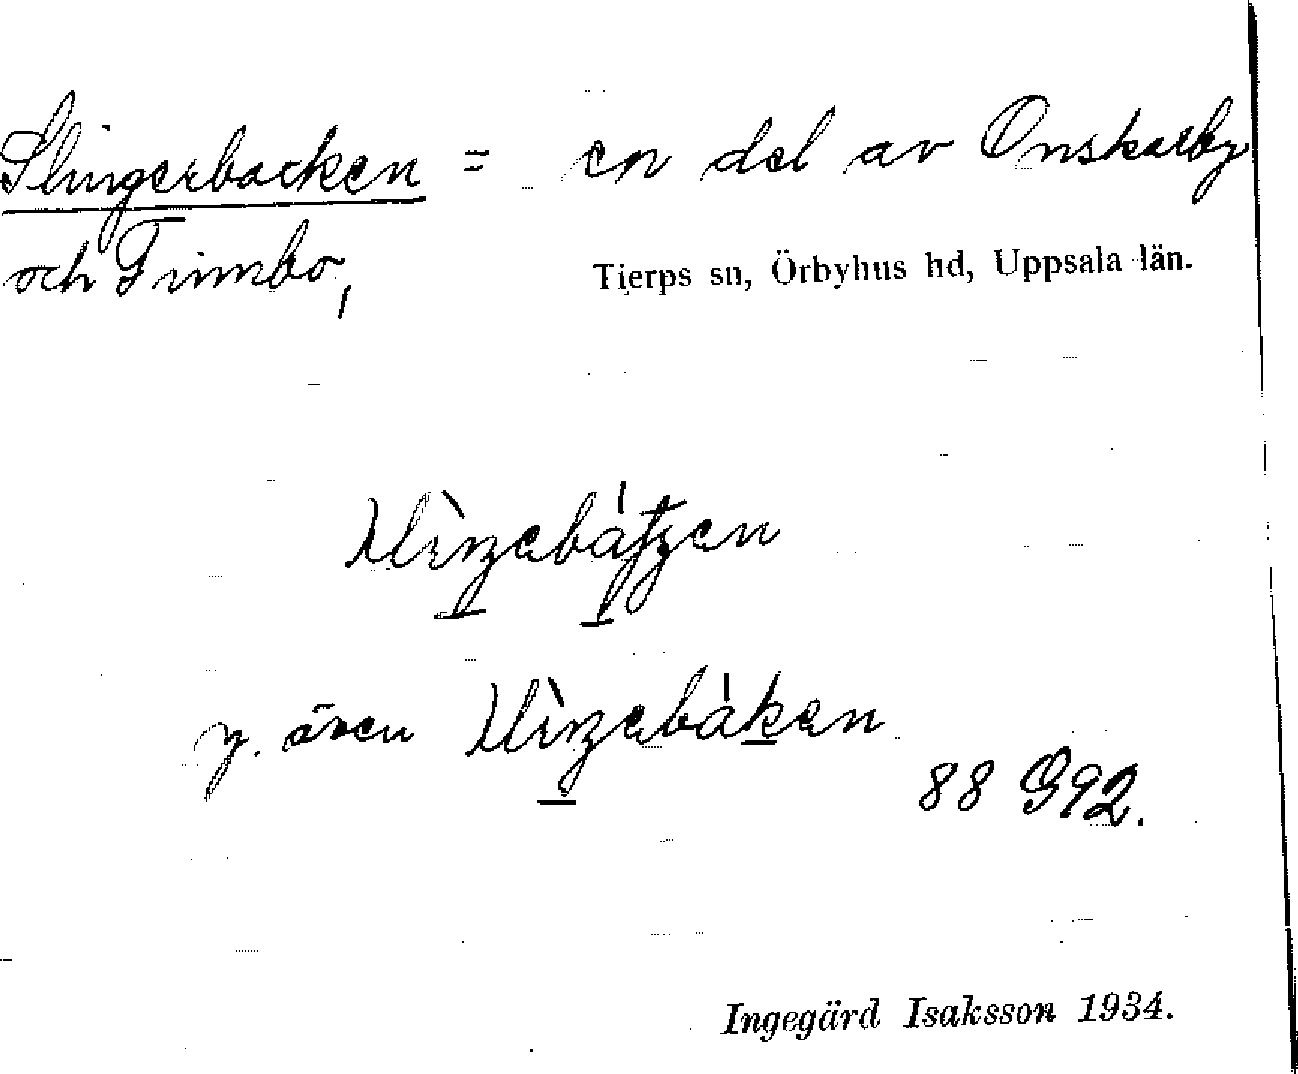 Slingerbacken = en del av Onskarby
och Trimbo,
Tierps sn, Örbyhus hd, Uppsala län.
y. även
88 G92.
Ingegärd Isaksson 1934.